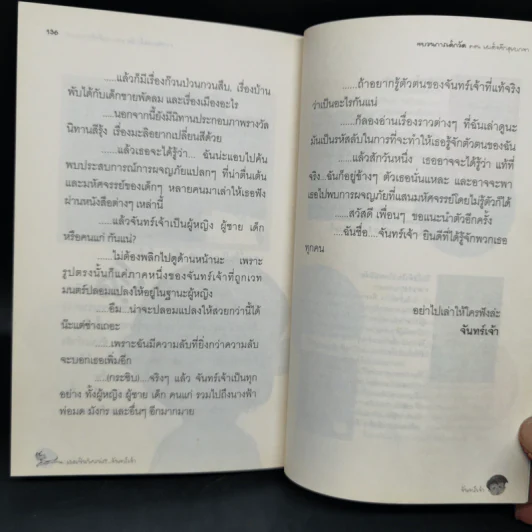 136
.....แล้วก็มีเรื่องก๊วนป่วนกวนสืบ, เรื่องบ้าน
พับได้กับเด็กชายพัดลม และเรื่องเมืองอะไร
.....นอกจากนี้ยังมีนิทานประกอบภาพรางวัล
นิทานสีรุ้ง เรื่องมะลิอยากเปลี่ยนสีด้วย
.....แล้วเธอจะได้รู้ว่า... ฉันน่ะแอบไปค้น
พบประสบการณ์การผจญภัยแปลกๆ ที่น่าตื่นเต้น
และมหัศจรรย์ของเด็กๆ หลายคนมาเล่าให้เธอฟัง
ผ่านหนังสือต่างๆ เหล่านี้
.....แล้วจันทร์เจ้าเป็นผู้หญิง ผู้ชาย เด็ก
หรือคนแก่ กันแน่?
.....ไม่ต้องพลิกไปดูด้านหน้านะ เพราะ
รูปตรงนั้นก็แค่ภาคหนึ่งของจันทร์เจ้าที่ถูกเวท
มนตร์ปลอมแปลงให้อยู่ในฐานะผู้หญิง
.....อืม...น่าจะปลอมแปลงให้สวยกว่านี้ได้
น๊ะแต่ช่างเถอะ
.....เพราะฉันมีความลับที่ยิ่งกว่าความลับ
จะบอกเธอเพิ่มอีก
.....(กระซิบ)....จริงๆ แล้ว จันทร์เจ้าเป็นทุก
อย่าง ทั้งผู้หญิง ผู้ชาย เด็ก คนแก่ รวมไปถึงนางฟ้า
พ่อมด มังกร และอื่นๆ อีกมากมาย
.....ถ้าอยากรู้ตัวตนของจันทร์เจ้าที่แท้จริง
ว่าเป็นอะไรกันแน่
.....ก็ลองอ่านเรื่องราวต่างๆ ที่ฉันเล่าดูนะ
มันเป็นรหัสลับในการที่จะทำให้เธอรู้จักตัวตนของฉัน
.....แล้วสักวันหนึ่ง เธออาจจะได้รู้ว่า แท้ที่
จริง...ฉันก็อยู่ข้างๆ ตัวเธอนั่นแหละ และอาจจะพา
เธอไปพบการผจญภัยที่แสนมหัศจรรย์โดยไม่รู้ตัวก็ได้
.....สวัสดี เพื่อนๆ ขอแนะนำตัวอีกครั้ง
.....ฉันชื่อ....จันทร์เจ้า ยินดีที่ได้รู้จักพวกเธอ
ทุกคน
อย่าไปเล่าให้ใครฟังล่ะ
จันทร์เจ้า